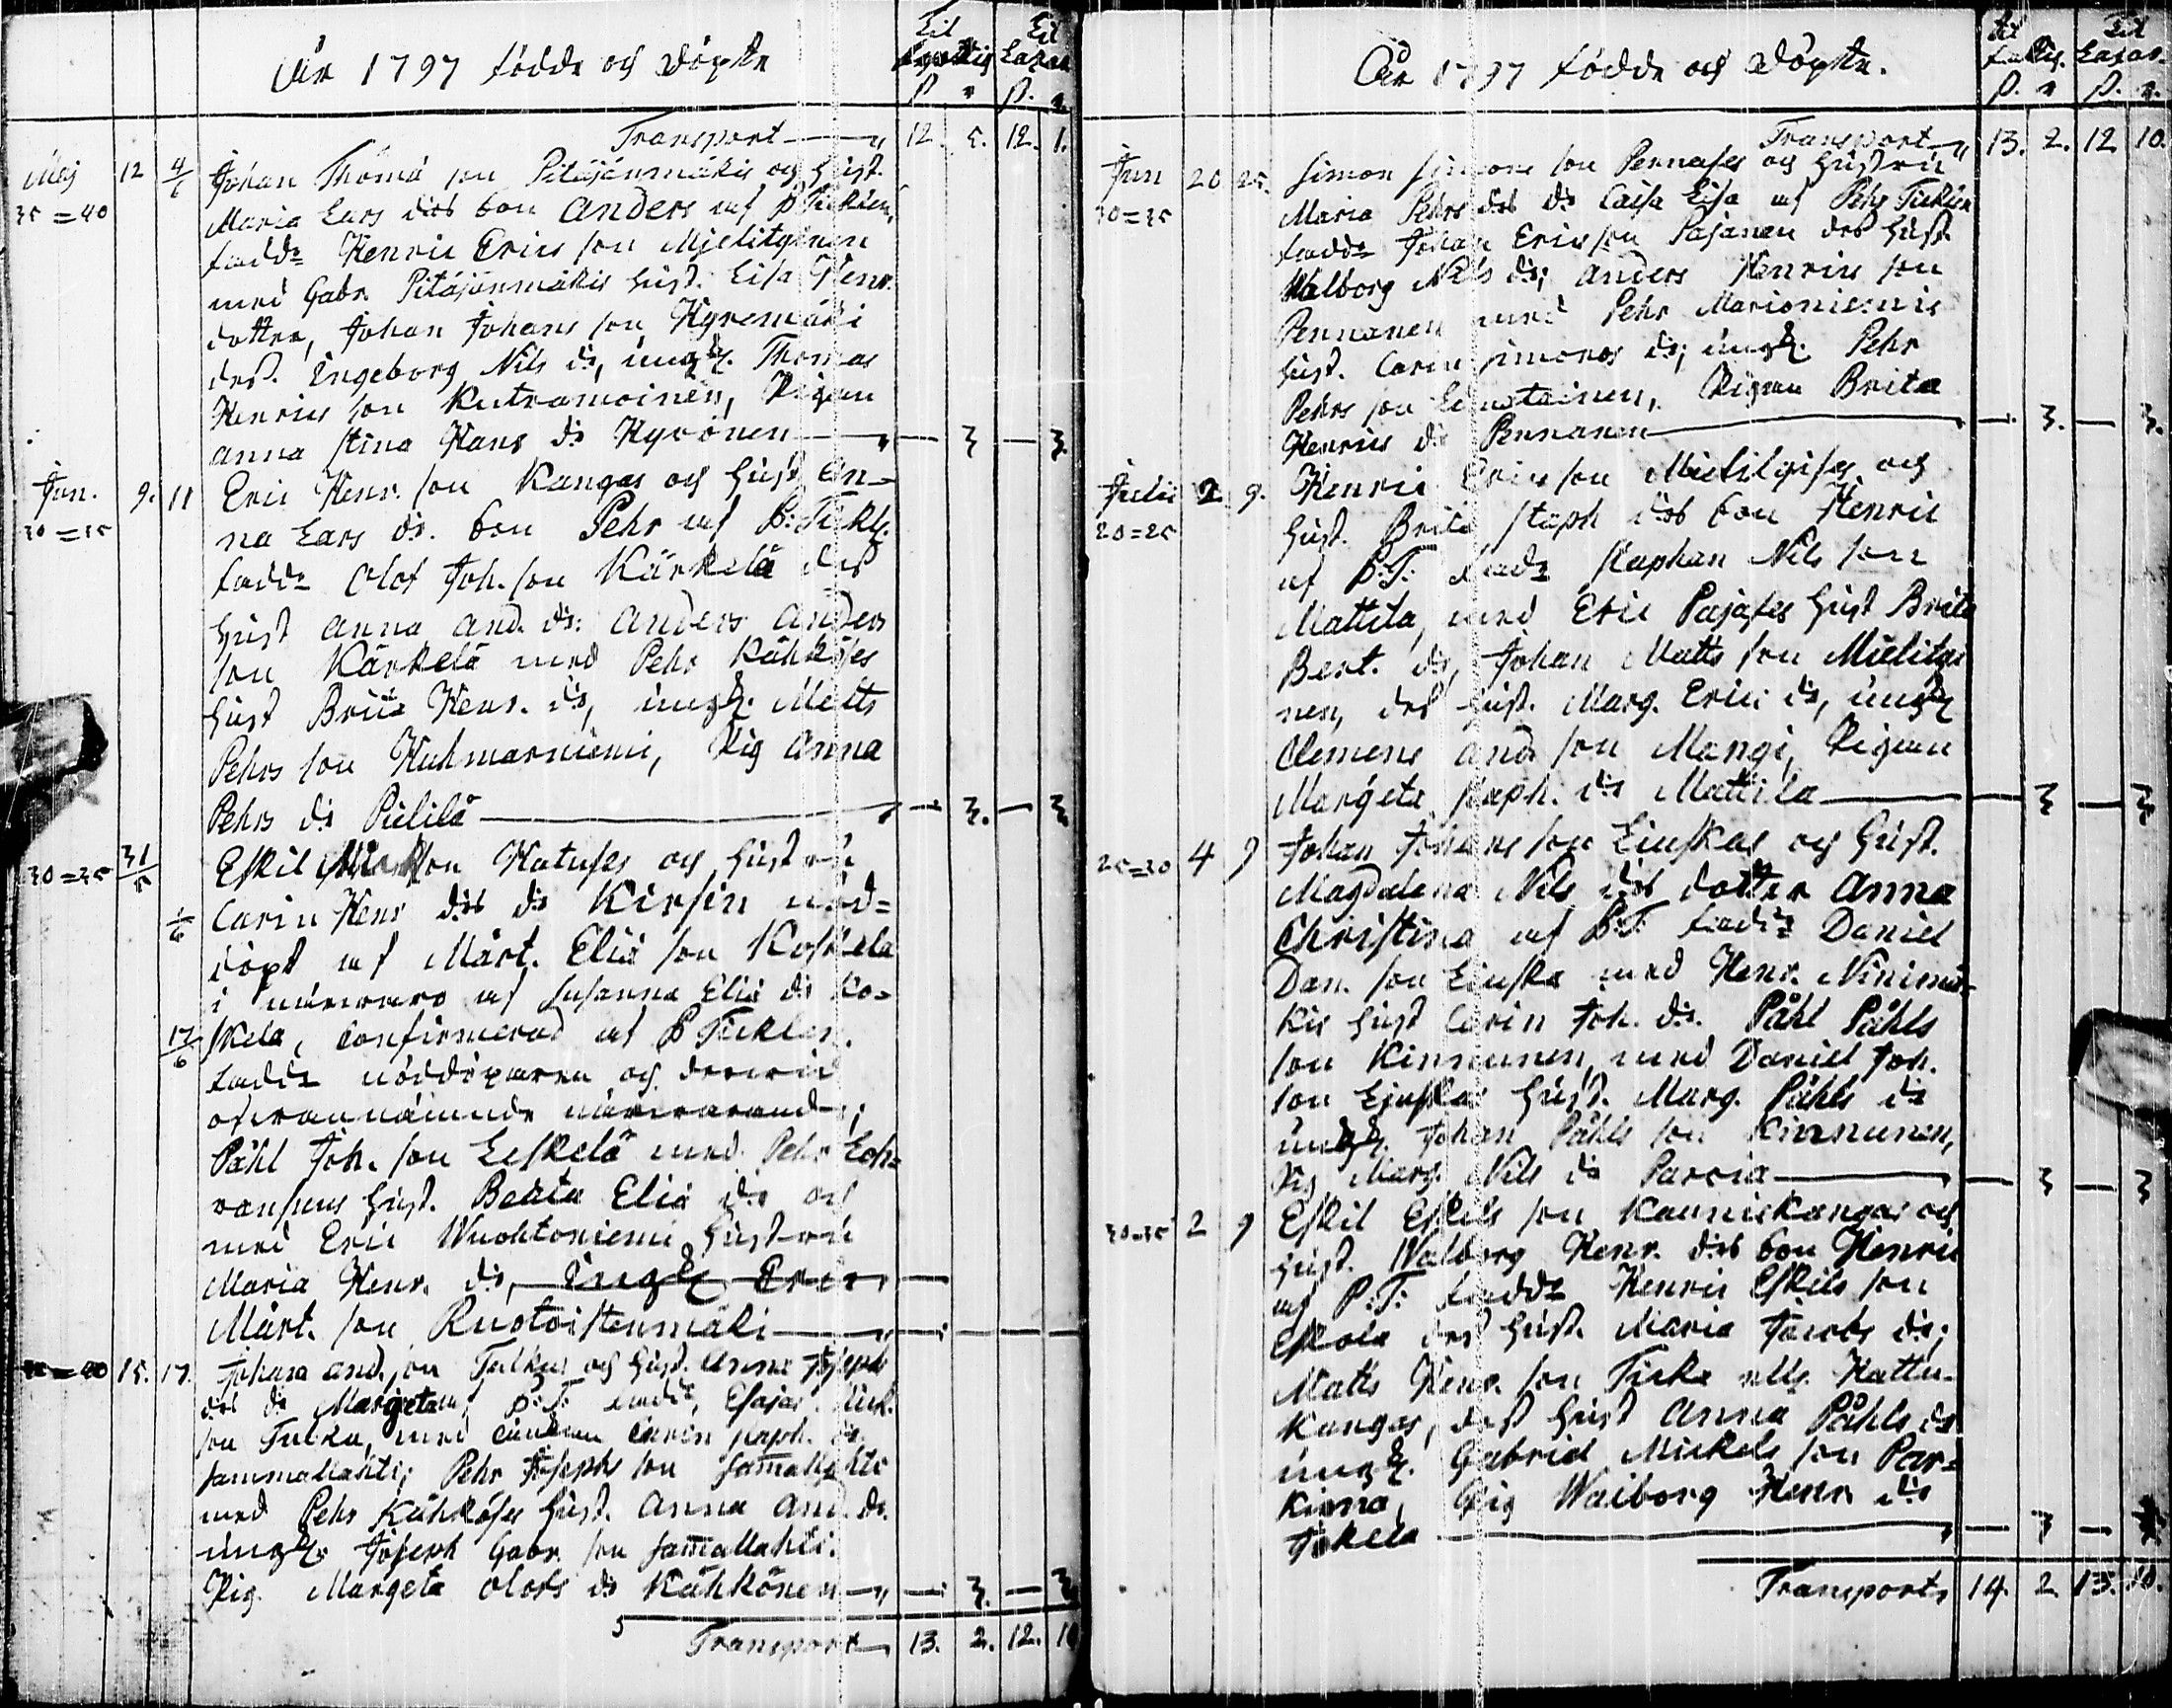 År 1797 födde och döpte
Til Til
Lazar
Transport 12. 5. 12. 1.
Maj 12 4/6 Johan Thomæ son Pitäjänmäkis och Hust.
35=40 Maria Lars dot. son Anders af P Ticklen,
fadd. Henric Erics son Mielitginen
med Gabr. Pitäjänmäkis Hust. Lisa Henr.
dotter, Johan Johans son Kyremäki
dess. Ingeborg Nils dr, ungk. Thomas
Henrics son Kutramoinen, Pigan
Anna Stina Hans dr Hyvönen — 3 — 3.
Jun. 9. 11 Eric Henr. son Kangas och Hust. An=
30=35 na Lars dr. son Pehr af P: Tickl.
fadd. Olof Joh. son Kärkelä dess
Hust Anna And. dr: Anders Anders
son Kärkelä med Pehr Kähköses
Hust Brita Henr. dr, ungk. Matts
Pehrs son Kuhmarniemi, Pig Anna
Pehrs dr Pielilä — 3. — 3
30=35 31/5 Eskil son Hatuses och Hustru
1/6 Carin Henr dot. dr Kirstin nöd=
döpt af Mårt. Eliæ son Koskela
i närvaro af Susanna Eliæ dr Ko=
17/6 skela, confirmerad af P Ticklen.
fadd. nöddöparen och
ofvannämnde närvarande;
Påhl Joh. son Leskelä med Pehr Loh=
ransens Hust. Beata Eliæ dr och
med Eric Wuohtoniemi Hustru
Maria Henr. dr, ungk Eric
Mårt. son Ruotoistenmäki —
=40 15. 17. Johan And. son Tulkus och Hust. Anna Joseph
dot. dr Margeta af P:T. fadd. Esajas Mick.
son Tulku, med Carin Staph. dr.
Sammallahti; Pehr Josephs son Sam̄allahti
med Pehr Kähköses Hust. Anna And. dr.
ungk. Joseph Gabr. son Sam̄allahti.
Pig. Margeta Olofs dr Kähkönen — 3. — 3
Transport 13. 2. 12. 10
År 1797 födde och döpte.
Til Til
Lazar.
Transport 13. 2. 12 10.
Jun 20 25. Simon Simons son Pennases och Hustru
30=35 Maria Pehrs dot. dr Caisa Lisa af Pehr Ticklen
fadd. Johan Erics son Pajanen dess Hust.
Walborg Nils dr; Anders Henrics son
Pennanen med Pehr Marioniemis
Hust. Carin Simons dr; ungk. Pehr
Pehrs son, Pigan Brita
Henrics dr Pennanen — 3. — 3.
Julii 2 9. Henric Erics son Mielitgises och
20=25 Hust. Brita Staph dot. son Henric
af P:T: fadd. Staphan Nils son
Mattila, med Eric Pajases Hust Brita
Bert. dr, Johan Matts son Mielitgi
nen, dess Hust. Marg. Erics dr, ungk
Clemens And. son Mangi, Pigan
Margeta Staph. dr Mattila — 3 — 3
25=30 4 9 Johan Johans son Liuskas och Hust.
Magdalena Nils dot. dotter Anna
Christina af P:T. fadd. Daniel
Dan. son Liuska med Henr. Ninimä=
kis Hust Carin Joh. dr. Påhl Påhls
son Kinnunen, med Daniel Joh.
son Liuskas Hust. Marg. Påhls dr
ungk. Johan Påhls son Kinnunen,
Pig Marg. Nils dr Parcia — 3 — 3
30=35 2 9 Eskil Eskils son Kauniskangas och
Hust. Walborg Henr. dot. son Henric
af P:T: fadd. Henric Eskils son
Eskola dess Hust. Maria Jacobs dr;
Matts Henr. son Ticka ell. Hattu=
kangas, dess Hust Anna Påhls dr
ungk. Gabriel Mickels son Par=
kinna, Pig Walborg Henr. dr
Jokela — 3 —
Transport 14. 2. 13. 10.